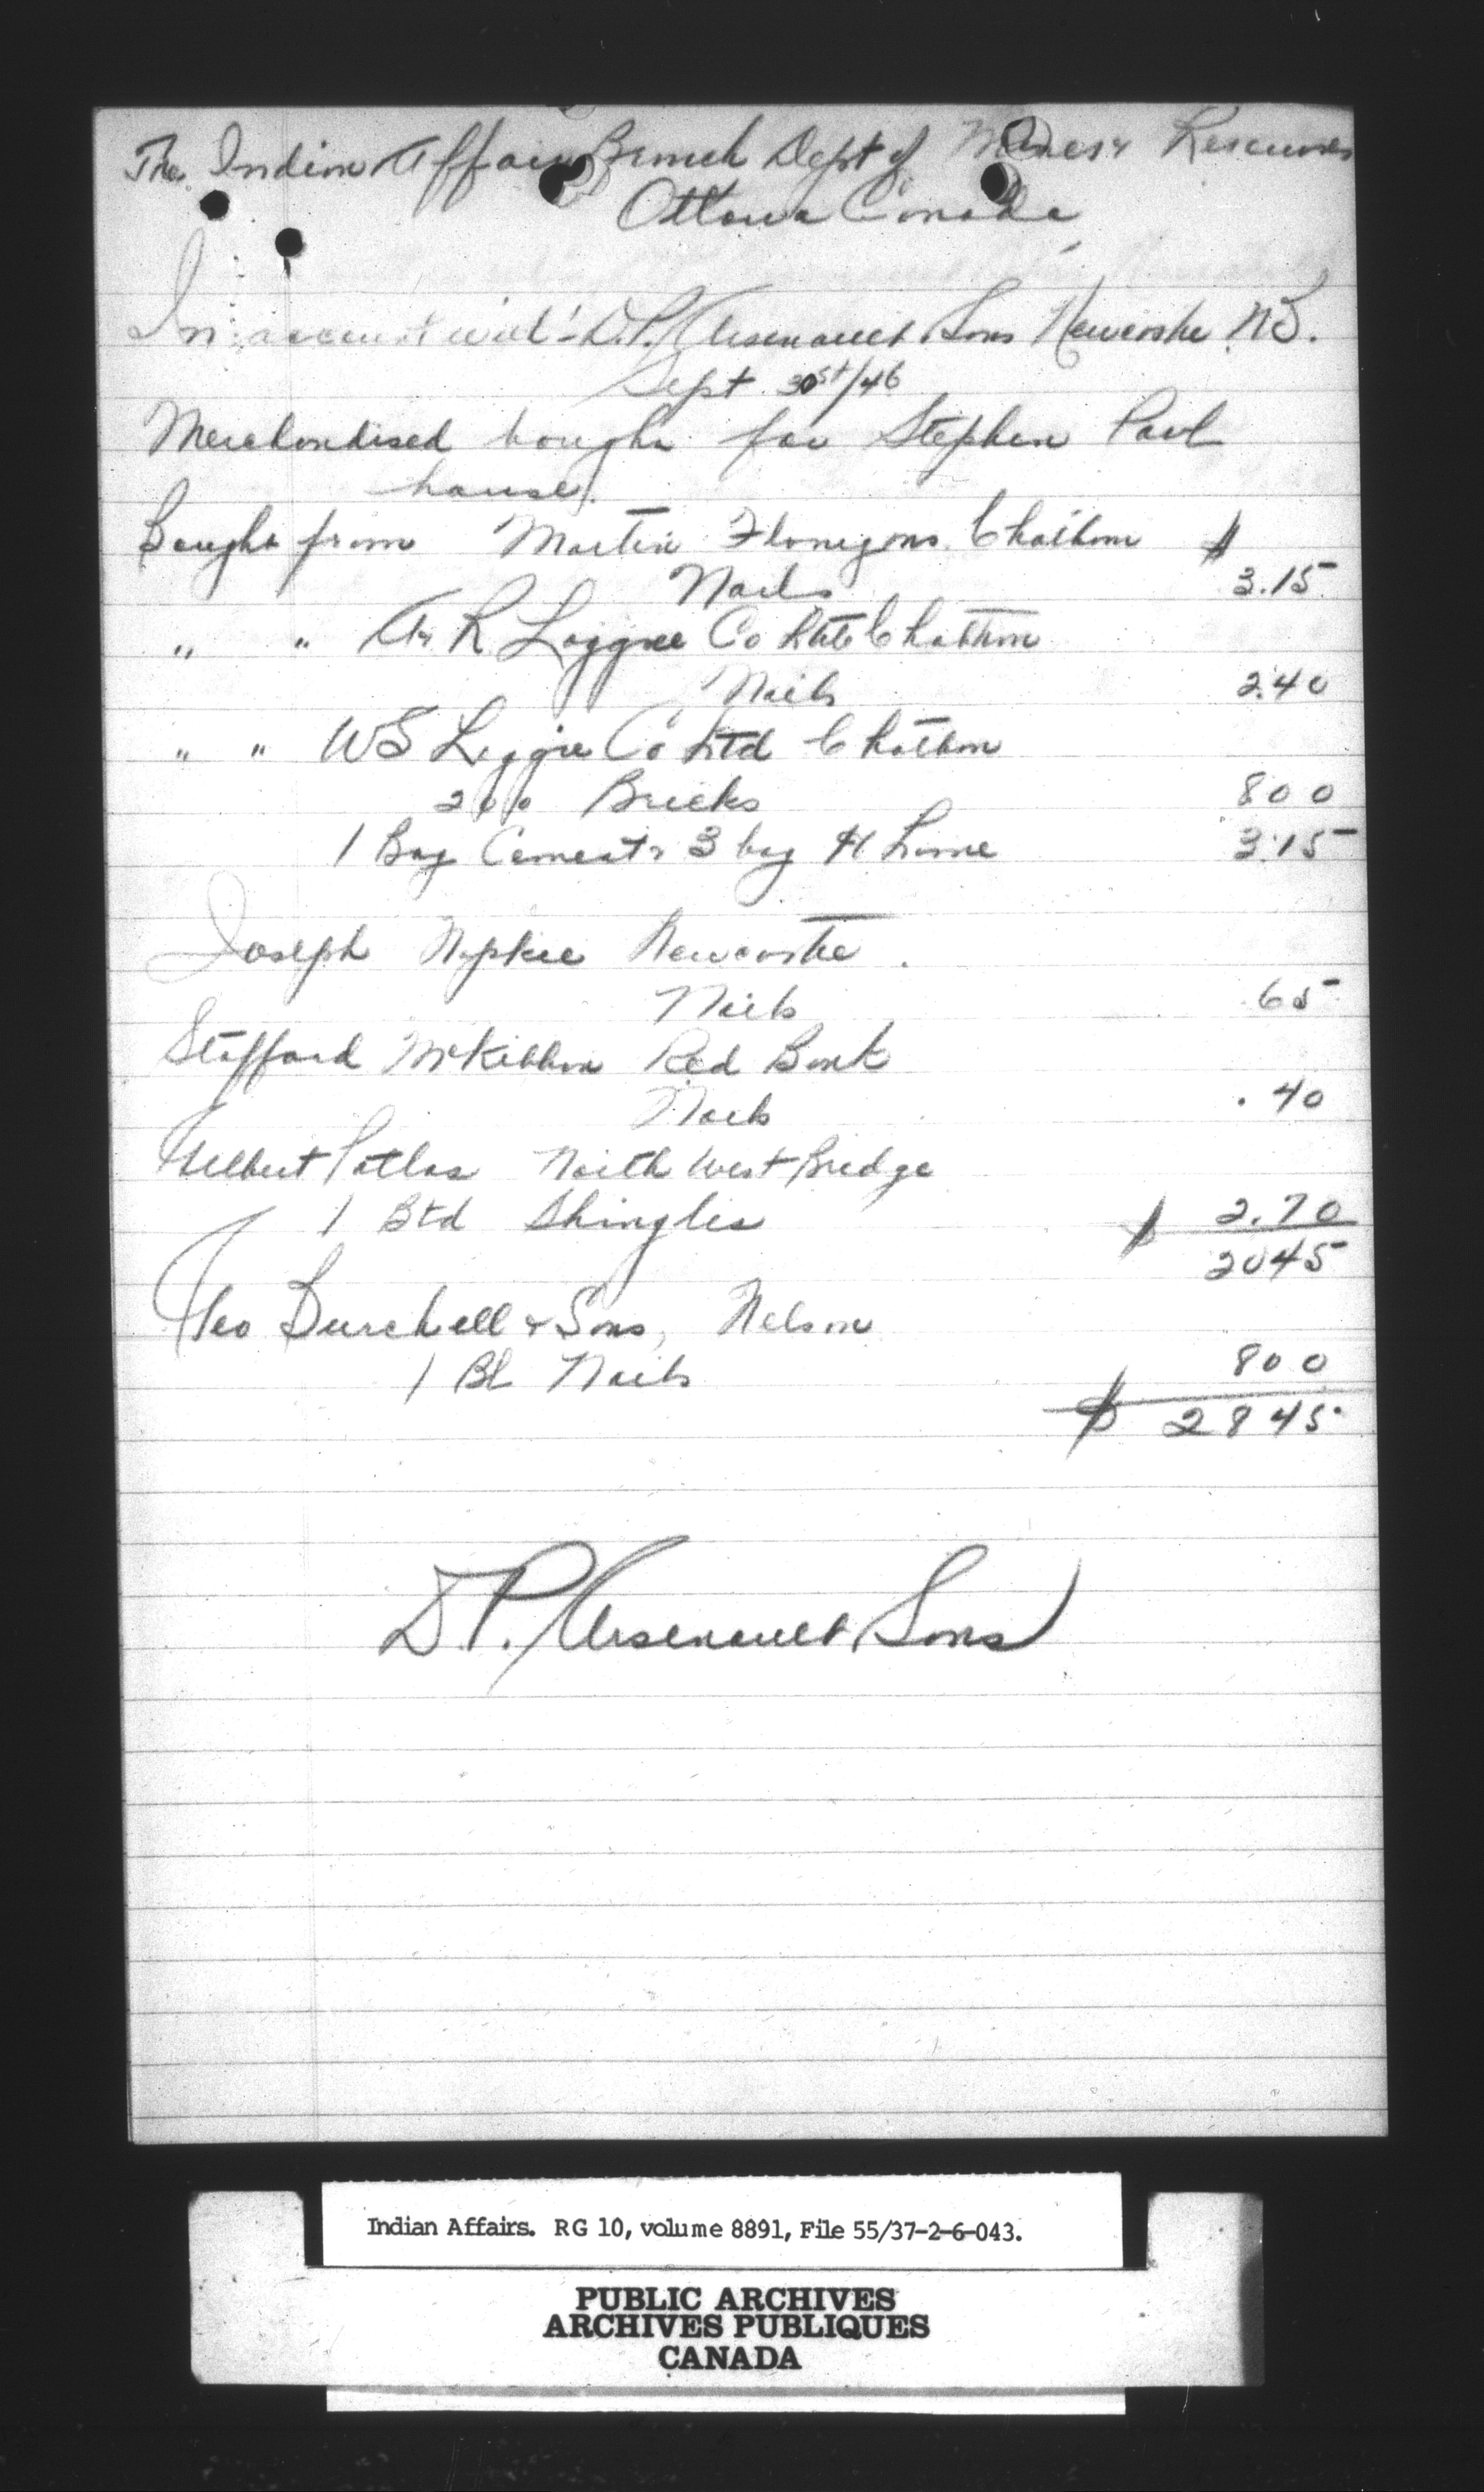 The Indian Affairs Branch Dept of Mines & Resources
Ottawa Canada
In account with D.P. Arsenault Sons Newcastle N.B.
Sept 30st/46
Merchondised bought for Stephen Paul
house.
Bought from Martin Flanigans Chatham $
Nails 3.15
" " A R Loggie Co Ltd Chatham
Nails 2.40
" " WS Loggie Co Ltd Chatham
200 Bricks 800
1 Bag Cement & 3 bag H Lime 3.15
Joseph Newcastle.
Nails .65
Stafford McKibbon Red Bank
Nails .40
North West Bridge
1 Bdl Shingles $ 2.70
2045
Geo Burchell & Sons, Nelson
1 Bl Nails 800
$ 2845
D.P. Arsenault Sons
Indian Affairs. RG 10, volume 8891, File 55/37-2-6-043.
PUBLIC ARCHIVES
ARCHIVES PUBLIQUES
CANADA